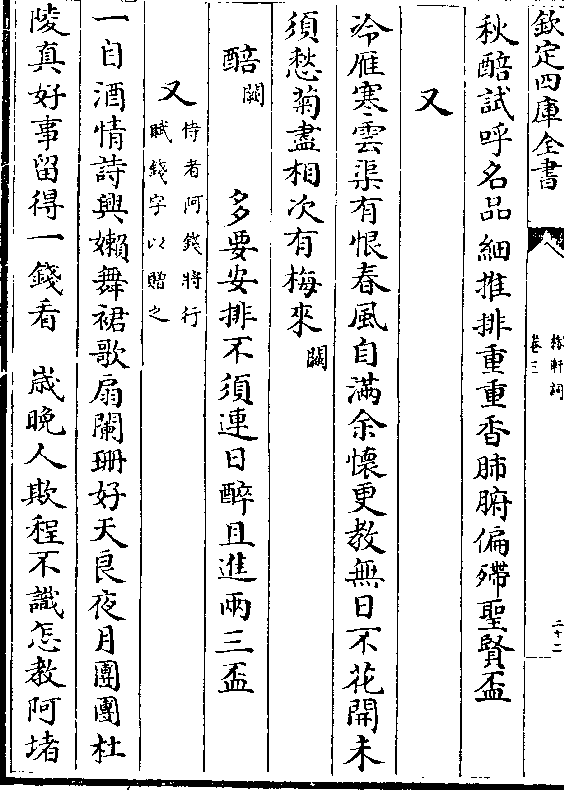 欽定四庫全書
稼軒詞
卷三
二十二
秋醅試呼名品細推排重重香肺腑偏殢聖賢盃
又
冷雁寒雲渠有恨春風自滿余懷更教無日不花開未
須愁菊盡相次有梅來闕
醅闕　多要安排不須連日醉且進兩三盃
又侍者阿錢將行
賦錢字以贈之
一自酒情詩興嬾舞裙歌扇闌珊好天良夜月團團杜
陵真好事留得一錢看　歳晚人欺程不識怎教阿堵